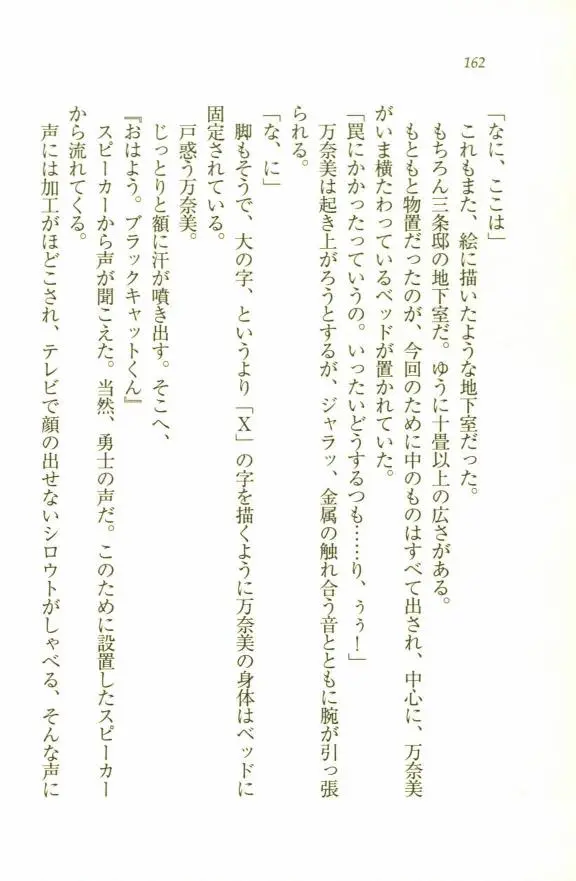 162
「なに、ここは」
これもまた、絵に描いたような地下室だった。
もちろん三条邸の地下室だ。ゆうに十畳以上の広さがある。
もともと物置だったのが、今回のために中のものはすべて出され、中心に、万奈美
がいま横たわっているベッドが置かれていた。
「罠にかかったっていうの。いったいどうするつも……り、ぅぅ！」
万奈美は起き上がろうとするが、ジャラッ、金属の触れ合う音とともに腕が引っ張
られる。
「な、に」
脚もそうで、大の字、というより「X」の字を描くように万奈美の身体はベッドに
固定されている。
戸惑う万奈美。
じっとりと額に汗が噴き出す。そこへ、
『おはよう。ブラックキャットくん』
スピーカーから声が聞こえた。当然、勇士の声だ。このために設置したスピーカー
から流れてくる。
声には加工がほどこされ、テレビで顔の出せないシロウトがしゃべる、そんな声に